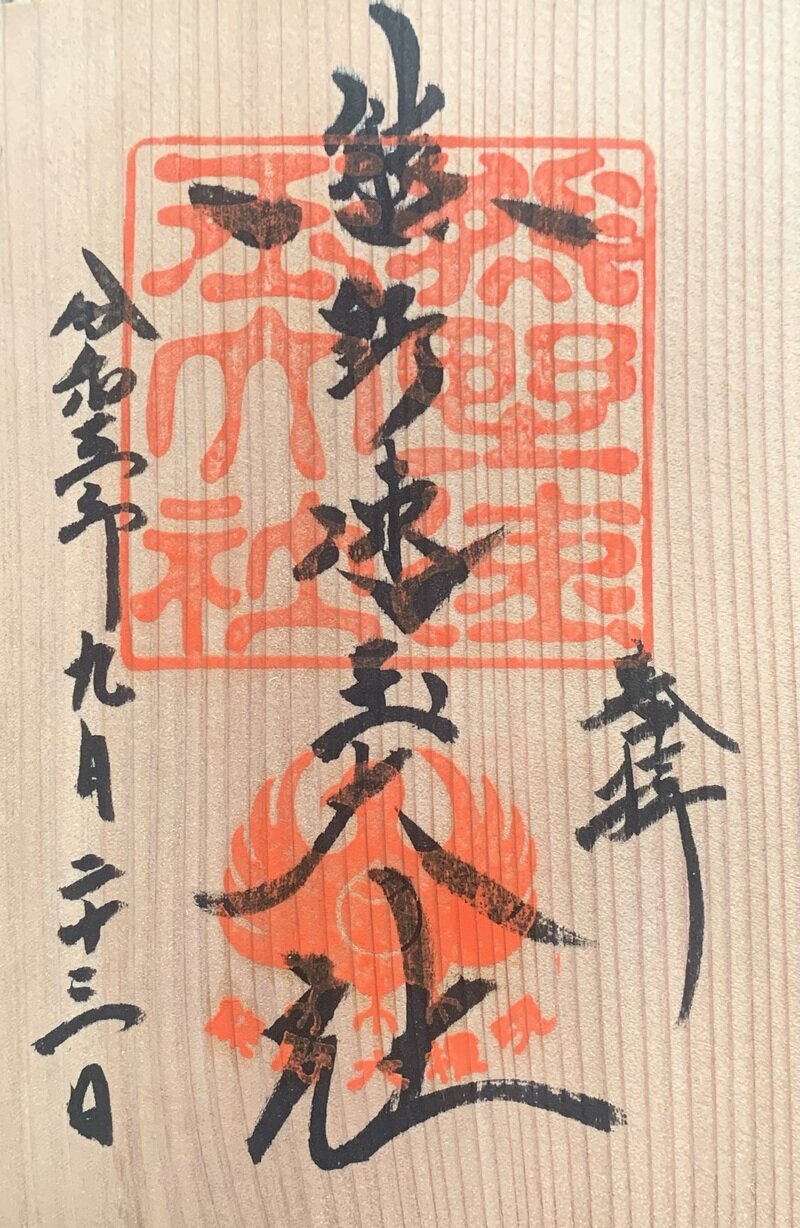 奉拝
熊野速玉大社
令和五年九月二十三日
熊野速
玉大社